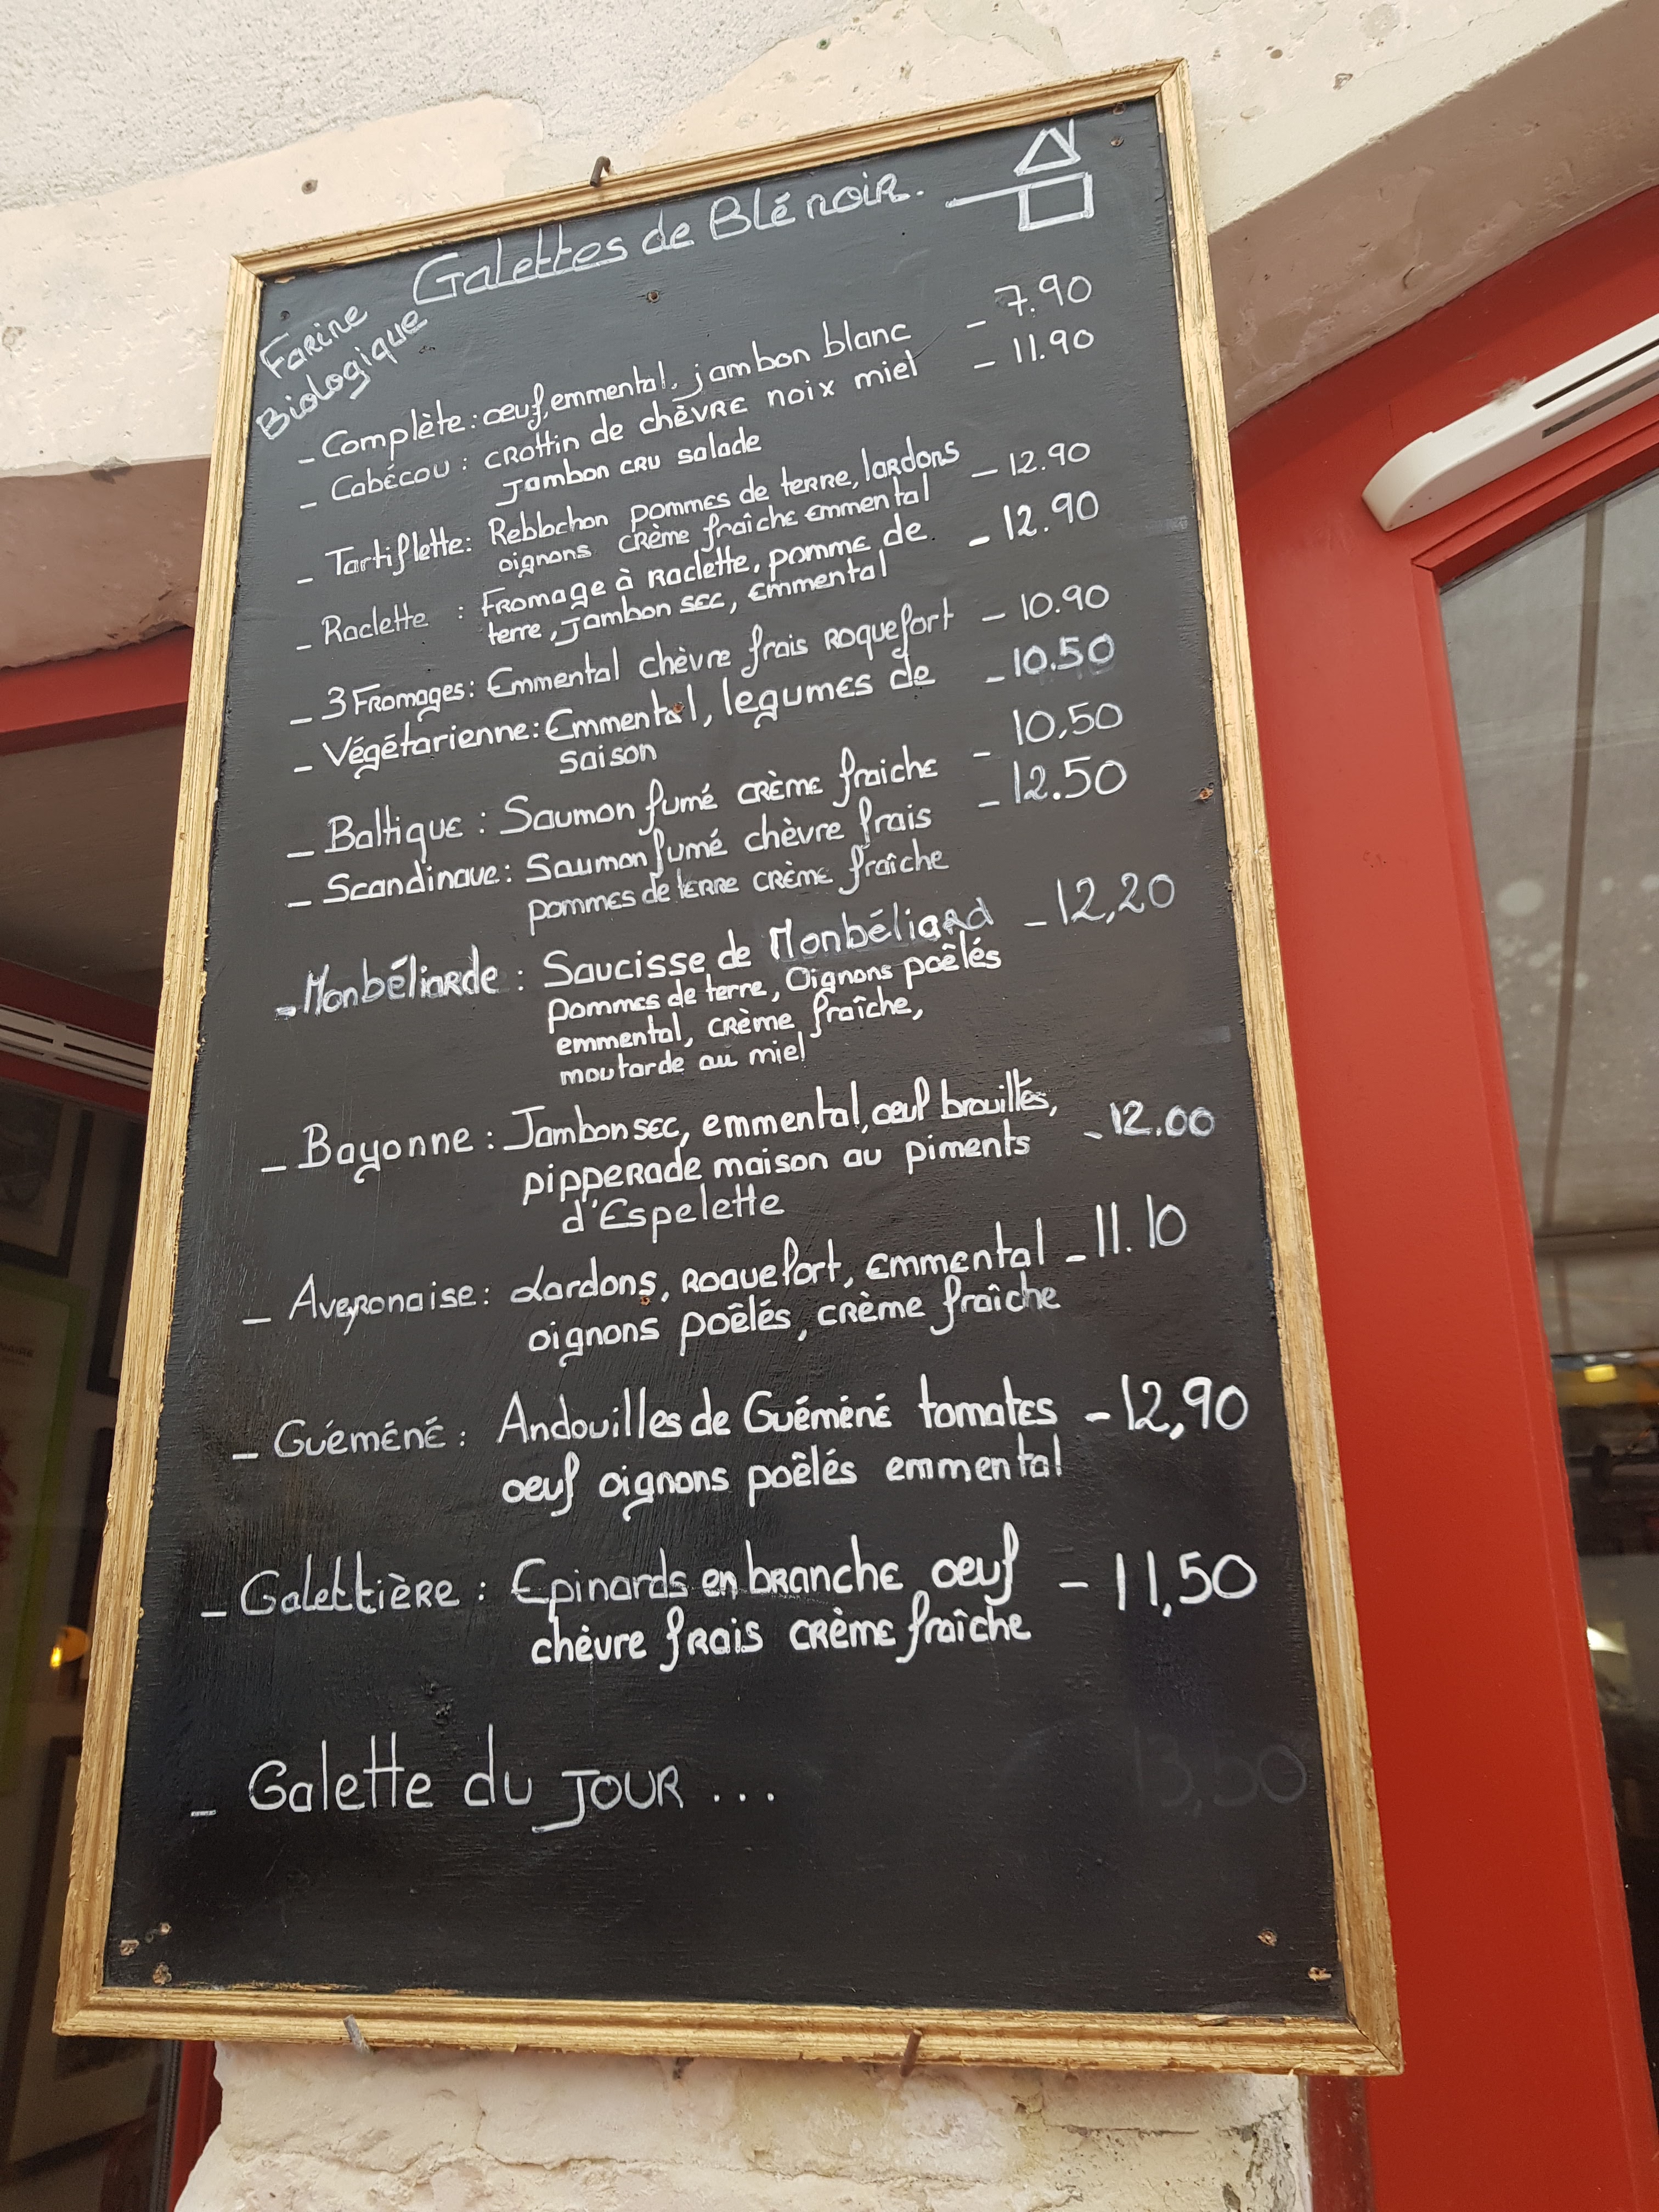 Galettes de Blé noir.
Farine
Biologique
_ Complète : œuf, emmental, jambon blanc _ 7.90
_ Cabécou : crottin de chèvre noix miel _ 11.90
Jambon cru salade
_ Tartiflette: Reblochon pommes de terre, lardons _ 12.90
oignons crème fraîche emmental
_ Raclette : Fromage à raclette, pomme de _ 12.90
terre, jambon sec, emmental
_ 3 Fromages: Emmental chèvre frais roquefort _ 10.90
_ Végétarienne: Emmental, legumes de _ 10.50
saison
_ Baltique : Saumon fumé crème fraiche _ 10,50
_ Scandinave: Saumon fumé chèvre frais _ 12.50
pommes de terre crème fraîche
_ Monbéliarde : Saucisse de Monbéliard _ 12,20
Pommes de terre, Oignons poêlés
emmental, crème fraîche,
moutarde au miel
_ Bayonne : Jambon sec, emmental, œuf brouillés, _ 12.00
pipperade maison au piments
d'Espelette
_ Aveyronaise : Lardons, roquefort, emmental _ 11.10
oignons poêlés, crème fraîche
_ Guéméné : Andouilles de Guéméné tomates _ 12,90
oeuf oignons poêlés emmental
_ Galettière : Epinards en branche oeuf _ 11,50
chèvre frais crème fraîche
_ Galette du JOUR ... 13,50